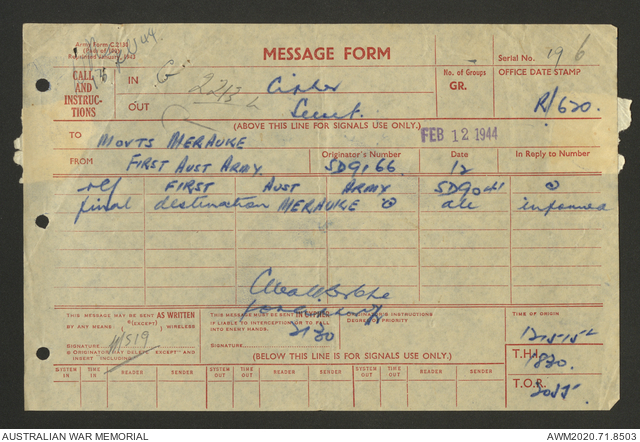 Army Form C.2136
MESSAGE FORM
Serial No. 196
CALL
AND
INSTRUC-
TIONS
IN
OUT
Cipher
Secret.
No. of Groups
GR.
OFFICE DATE STAMP
R/620.
(ABOVE THIS LINE FOR SIGNALS USE ONLY.)
FEB 12 1944
TO MOVTS MERAUKE
FROM FIRST AUST ARMY.
Originator's Number SD9166
Date 12
In Reply to Number
ref FIRST AUST ARMY SD9041 @
final destination MERAUKE @ all informed
THIS MESSAGE MAY BE SENT AS WRITTEN
BY ANY MEANS (EXCEPT) WIRELESS
SIGNATURE
ORIGINATOR MAY DELETE EXCEPT AND
INSERT INCLUDING
THIS MESSAGE MUST BE SENT IN CYPHER
IF LIABLE TO INTERCEPTION OR TO FALL
INTO ENEMY HANDS.
SIGNATURE
2130
ORIGINATOR'S INSTRUCTIONS
DEGREE OF PRIORITY
TIME OF ORIGIN
T.H.I. 1830.
T.O.R. 2055
(BELOW THIS LINE IS FOR SIGNALS USE ONLY.)
SYSTEM IN TIME IN READER SENDER SYSTEM OUT TIME OUT READER SENDER SYSTEM OUT TIME OUT READER SENDER
AUSTRALIAN WAR MEMORIAL
AWM2020.71.8503